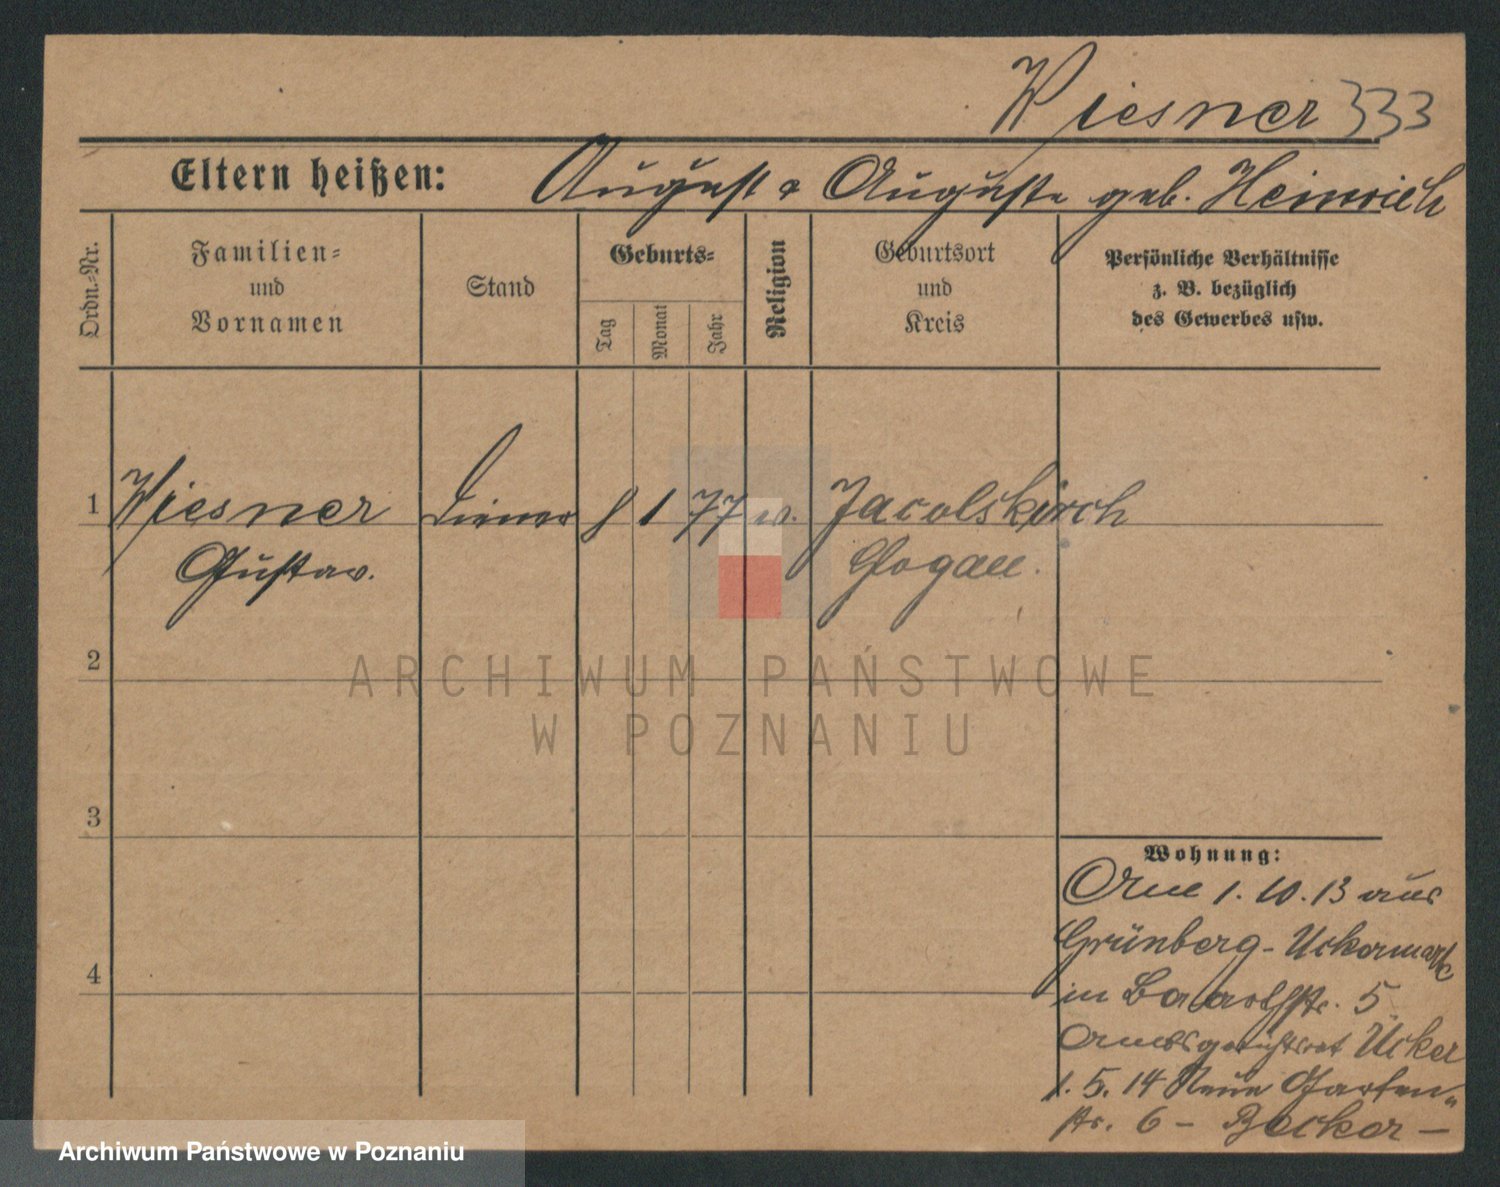 Wiesner 333
Eltern heißen: August & Auguste geb. Heinrich
Ordn.-Nr.
Familien=
und
Vornamen
Stand
Geburts=
Tag
Monat
Jahr
Religion
Geburtsort
und
Kreis
Persönliche Verhältnisse
z. B. bezüglich
des Gewerbes usw.
1 Wiesner Diener 8 1 77 ev. Jacobskirch
Gustav. Glogau.
2
3
4
ARCHIWUM PAŃSTWOWE
W POZNANIU
Wohnung:
1. 10. 13 aus
Grünberg - Uckermark
in 5
Ucker
1. 5. 14 Neue Garten-
str. 6 - Becker -
Archiwum Państwowe w Poznaniu